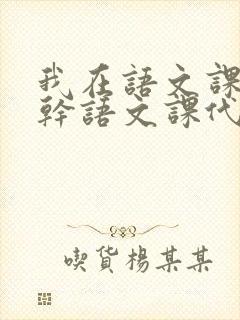 我在語文課
幹語文課代
喫貨楊某某